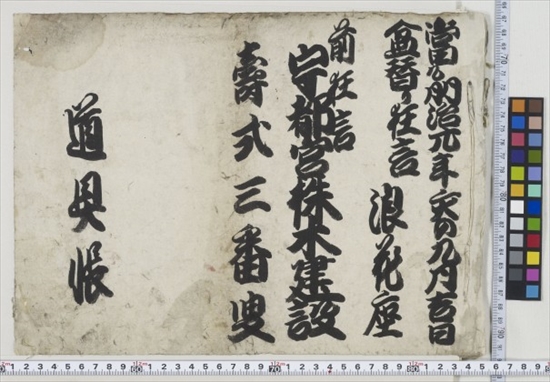 當る明治元年の九月吉日
盆替り狂言
浪花座
前狂言
宇都宮株木建設
壽式三番叟
道具帳